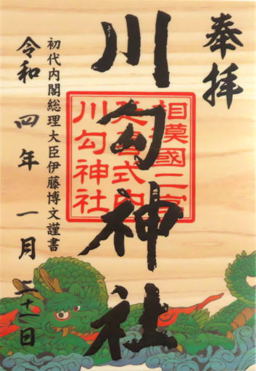 奉拝
川勾神社
相模國二宮
延喜式内
川勾神社
初代内閣総理大臣伊藤博文謹書
令和四年一月二十一日